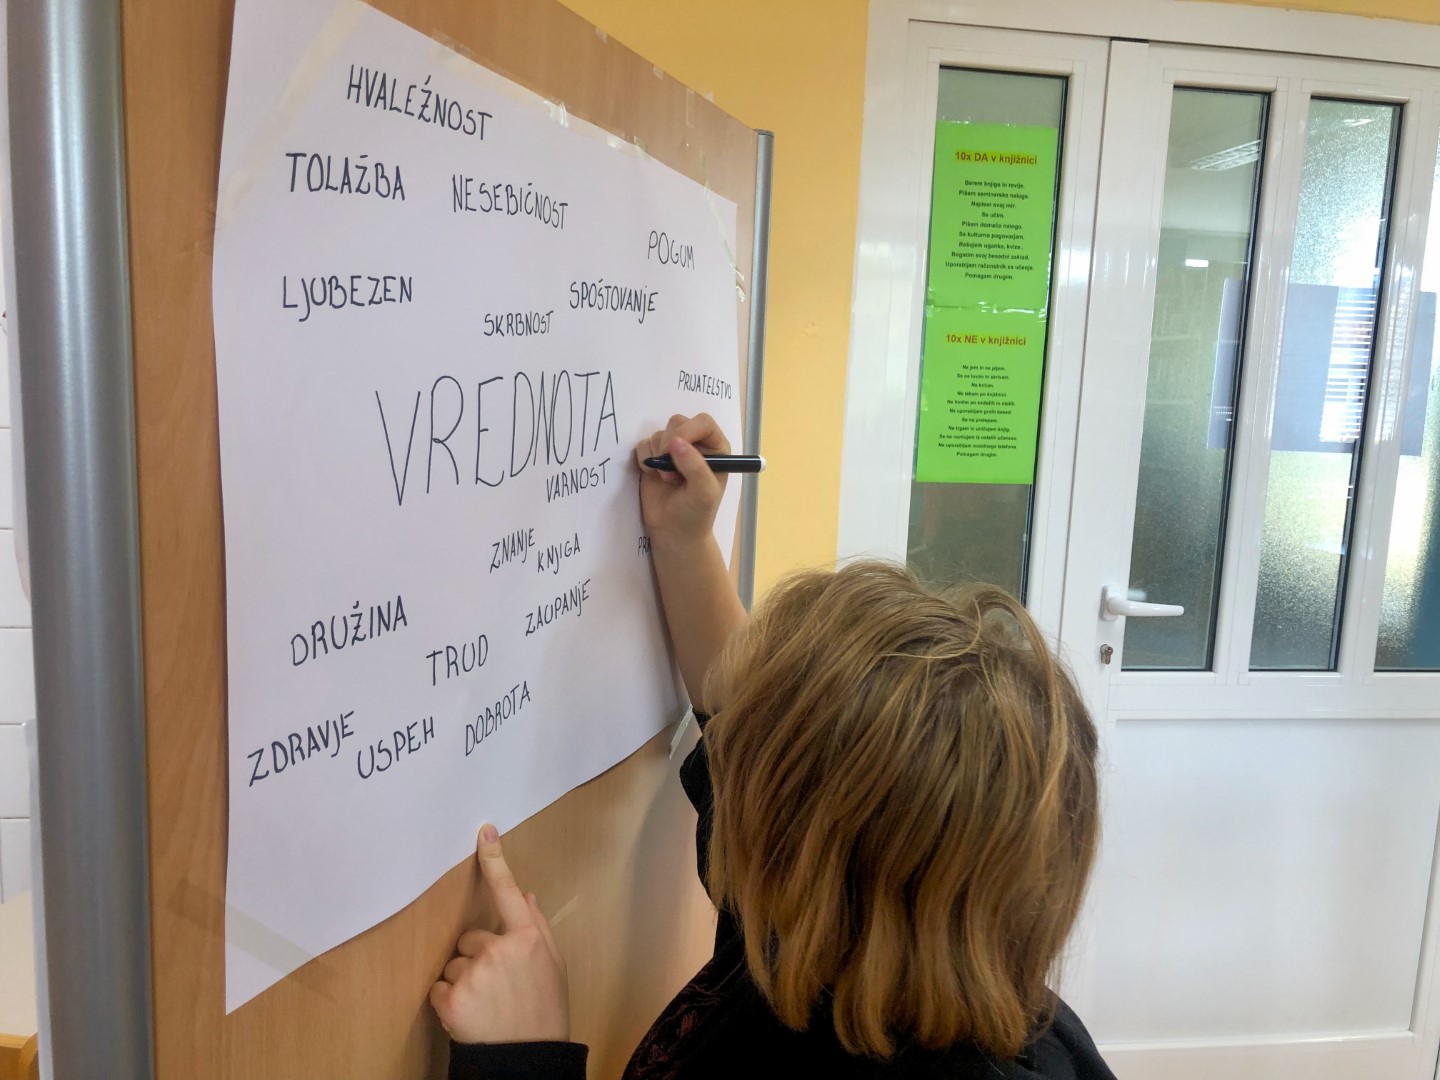 HVALEŽNOST
TOLAŽBA
NESEBIČNOST
POGUM
LJUBEZEN
SKRBNOST
SPOŠTOVANJE
PRIJATELSTVO
VREDNOTA
VARNOST
ZNANJE
KNJIGA
DRUŽINA
TRUD
ZAUPANJE
ZDRAVJE
USPEH
DOBROTA
10x DA v knjižnici
Berem knjige in revije.
Pišem seminarsko nalogo.
Najdem svoj mir.
Se učim.
Pišem domačo nalogo.
Se kulturno pogovarjam.
Rešujem uganke, kvize..
Bogatim svoj besedni zaklad.
Uporabljam računalnik za učenje.
Pomagam drugim.
10x NE v knjižnici
Ne jem in ne pijem.
Se ne lovim in skrivam.
Ne kričim.
Ne tekam po knjižnici.
Ne hodim po sedežih in stolih.
Ne uporabljam grdih besed.
Se ne pretepam.
Ne trgam in uničujem knjig.
Se ne norčujem iz ostalih učencev.
Ne uporabljam mobilnega telefona.
Pomagam drugim.